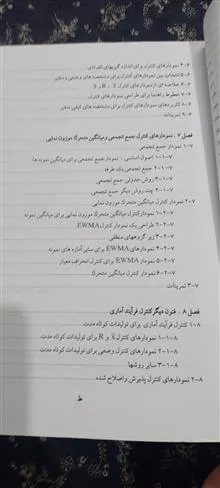 ۶-۴ نمودارهای کنترل برای اندازه گیریهای انفرادی
۶-۵ انتخاب بین نمودارهای کنترل برای مشخصه های وصفی و متغیر
۶-۶ خلاصه ای از نمودارهای کنترل X̄ ، R و S
۶-۷ خطوط راهنما برای طراحی نمودارهای کنترل
۶-۸ کاربردهای نمودارهای کنترل برای مشخصه های کیفی متغیر
۶-۹ تمرینات
فصل ۷ . نمودارهای کنترل جمع تجمعی و میانگین متحرک موزون نمایی
۷-۱ نمودار جمع تجمعی
۷-۱-۱ اصول اساسی : نمودار جمع تجمعی برای میانگین نمونه ها
۷-۱-۲ جمع تجمعی یک طرفه
۷-۱-۳ روش جدولی جمع تجمعی
۷-۱-۴ چند روش دیگر جمع تجمعی
۷-۲ نمودار کنترل میانگین متحرک موزون نمایی
۷-۲-۱ نمودار کنترل میانگین متحرک موزون نمایی برای میانگین نمونه
۷-۲-۲ طراحی یک نمودار کنترل EWMA
۷-۲-۳ زیر گروههای منطقی
۷-۲-۴ نمودارهای EWMA برای سایر آماره های نمونه
۷-۲-۵ نمودار EWMA برای کنترل انحراف معیار
۷-۲-۶ نمودار کنترل میانگین متحرک
۷-۳ تمرینات
فصل ۸ . فنون دیگر کنترل فرآیند آماری
۸-۱ کنترل فرآیند آماری برای تولیدات کوتاه مدت
۸-۱-۱ نمودارهای کنترل X̄ و R برای تولیدات کوتاه مدت
۸-۱-۲ نمودارهای کنترل وصفی برای تولیدات کوتاه مدت
۸-۱-۳ سایر روشها
۸-۲ نمودارهای کنترل پذیرش و اصلاح شده
ط